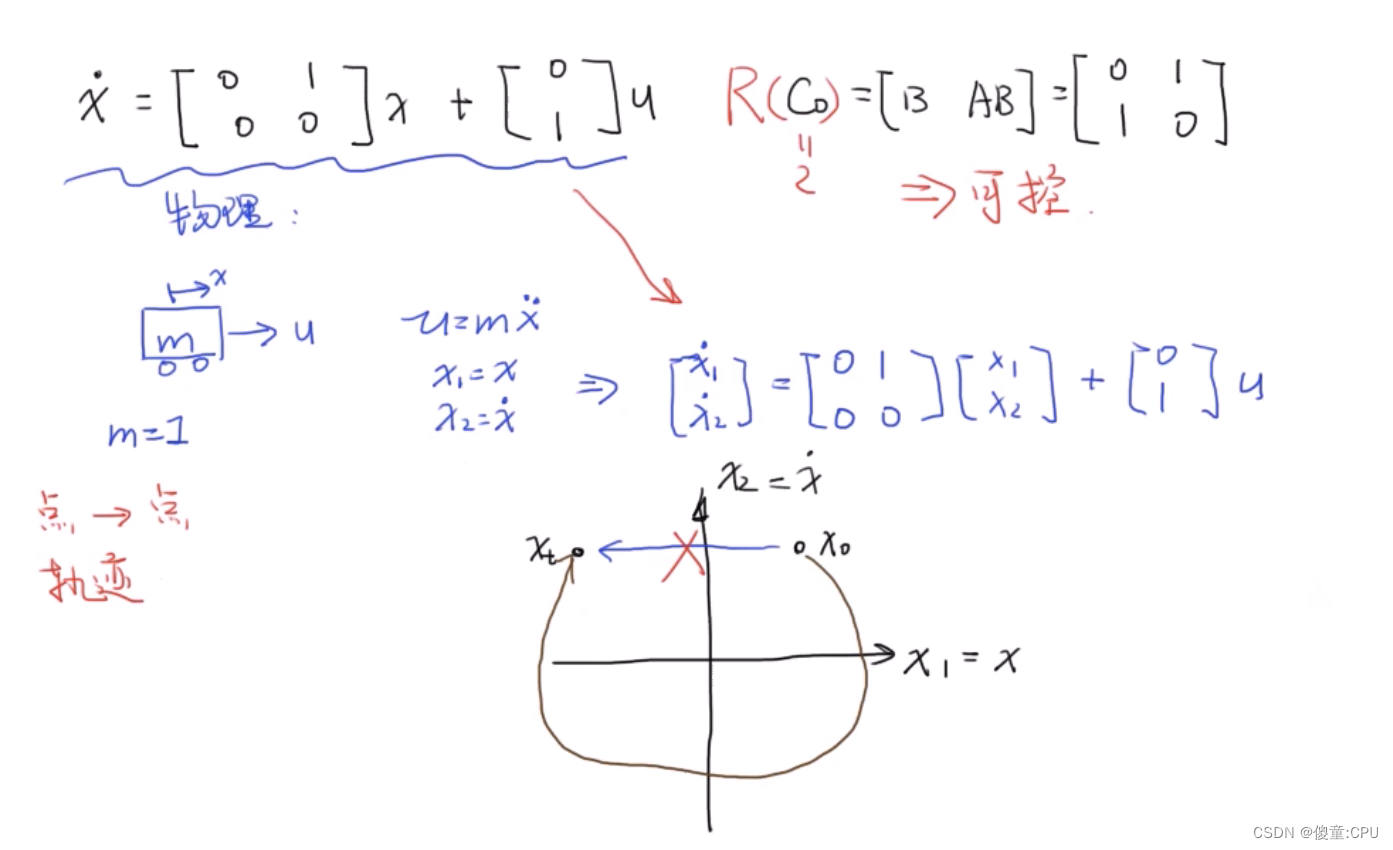 ẋ = [0 1; 0 0] x + [0; 1] u
R(Co) = [B AB] = [0 1; 1 0]
॥
2
⇒ 可控.
物理:
x
m → u
u=mẍ
x₁=x
x₂=ẋ
⇒ [ẋ₁; ẋ₂] = [0 1; 0 0] [x₁; x₂] + [0; 1] u
m=1
点 → 点
轨迹
x₂=ẋ
xₜ
x₀
x₁=x
CSDN @傻童:CPU